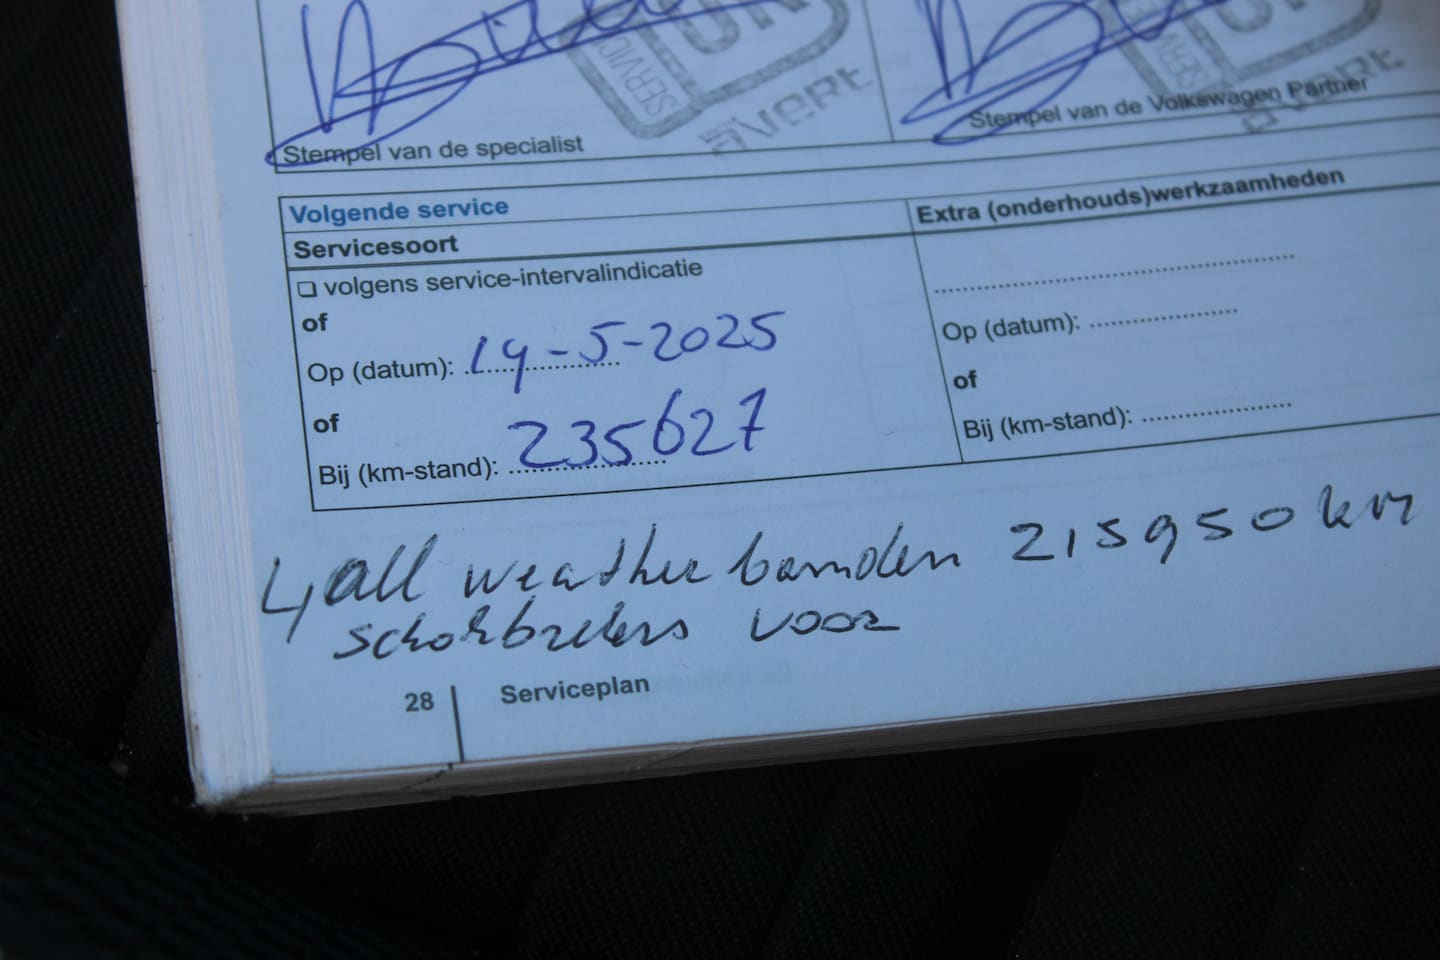 SERVICE
Evert
SERVICE
Stempel van de specialist
Stempel van de Volkswagen Partner
Volgende service
Servicesoort
Extra (onderhouds)werkzaamheden
❑ volgens service-intervalindicatie
of
Op (datum): 14-5-2025
Op (datum): ....................
of
of
Bij (km-stand): 235627
Bij (km-stand): ....................
4 all weather banden 215950 km
schokbrekers voor
28 | Serviceplan